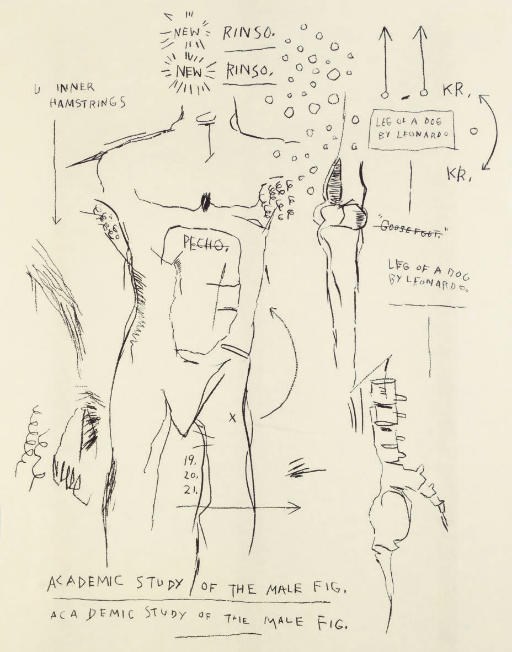 NEW RINSO.
NEW RINSO.
INNER
HAMSTRINGS
KR.
LEG OF A DOG
BY LEONARDO
KR.
PECHO.
"GOOSEFOOT."
LEG OF A DOG
BY LEONARDO.
X
19.
20.
21.
ACADEMIC STUDY OF THE MALE FIG.
ACADEMIC STUDY OF THE MALE FIG.